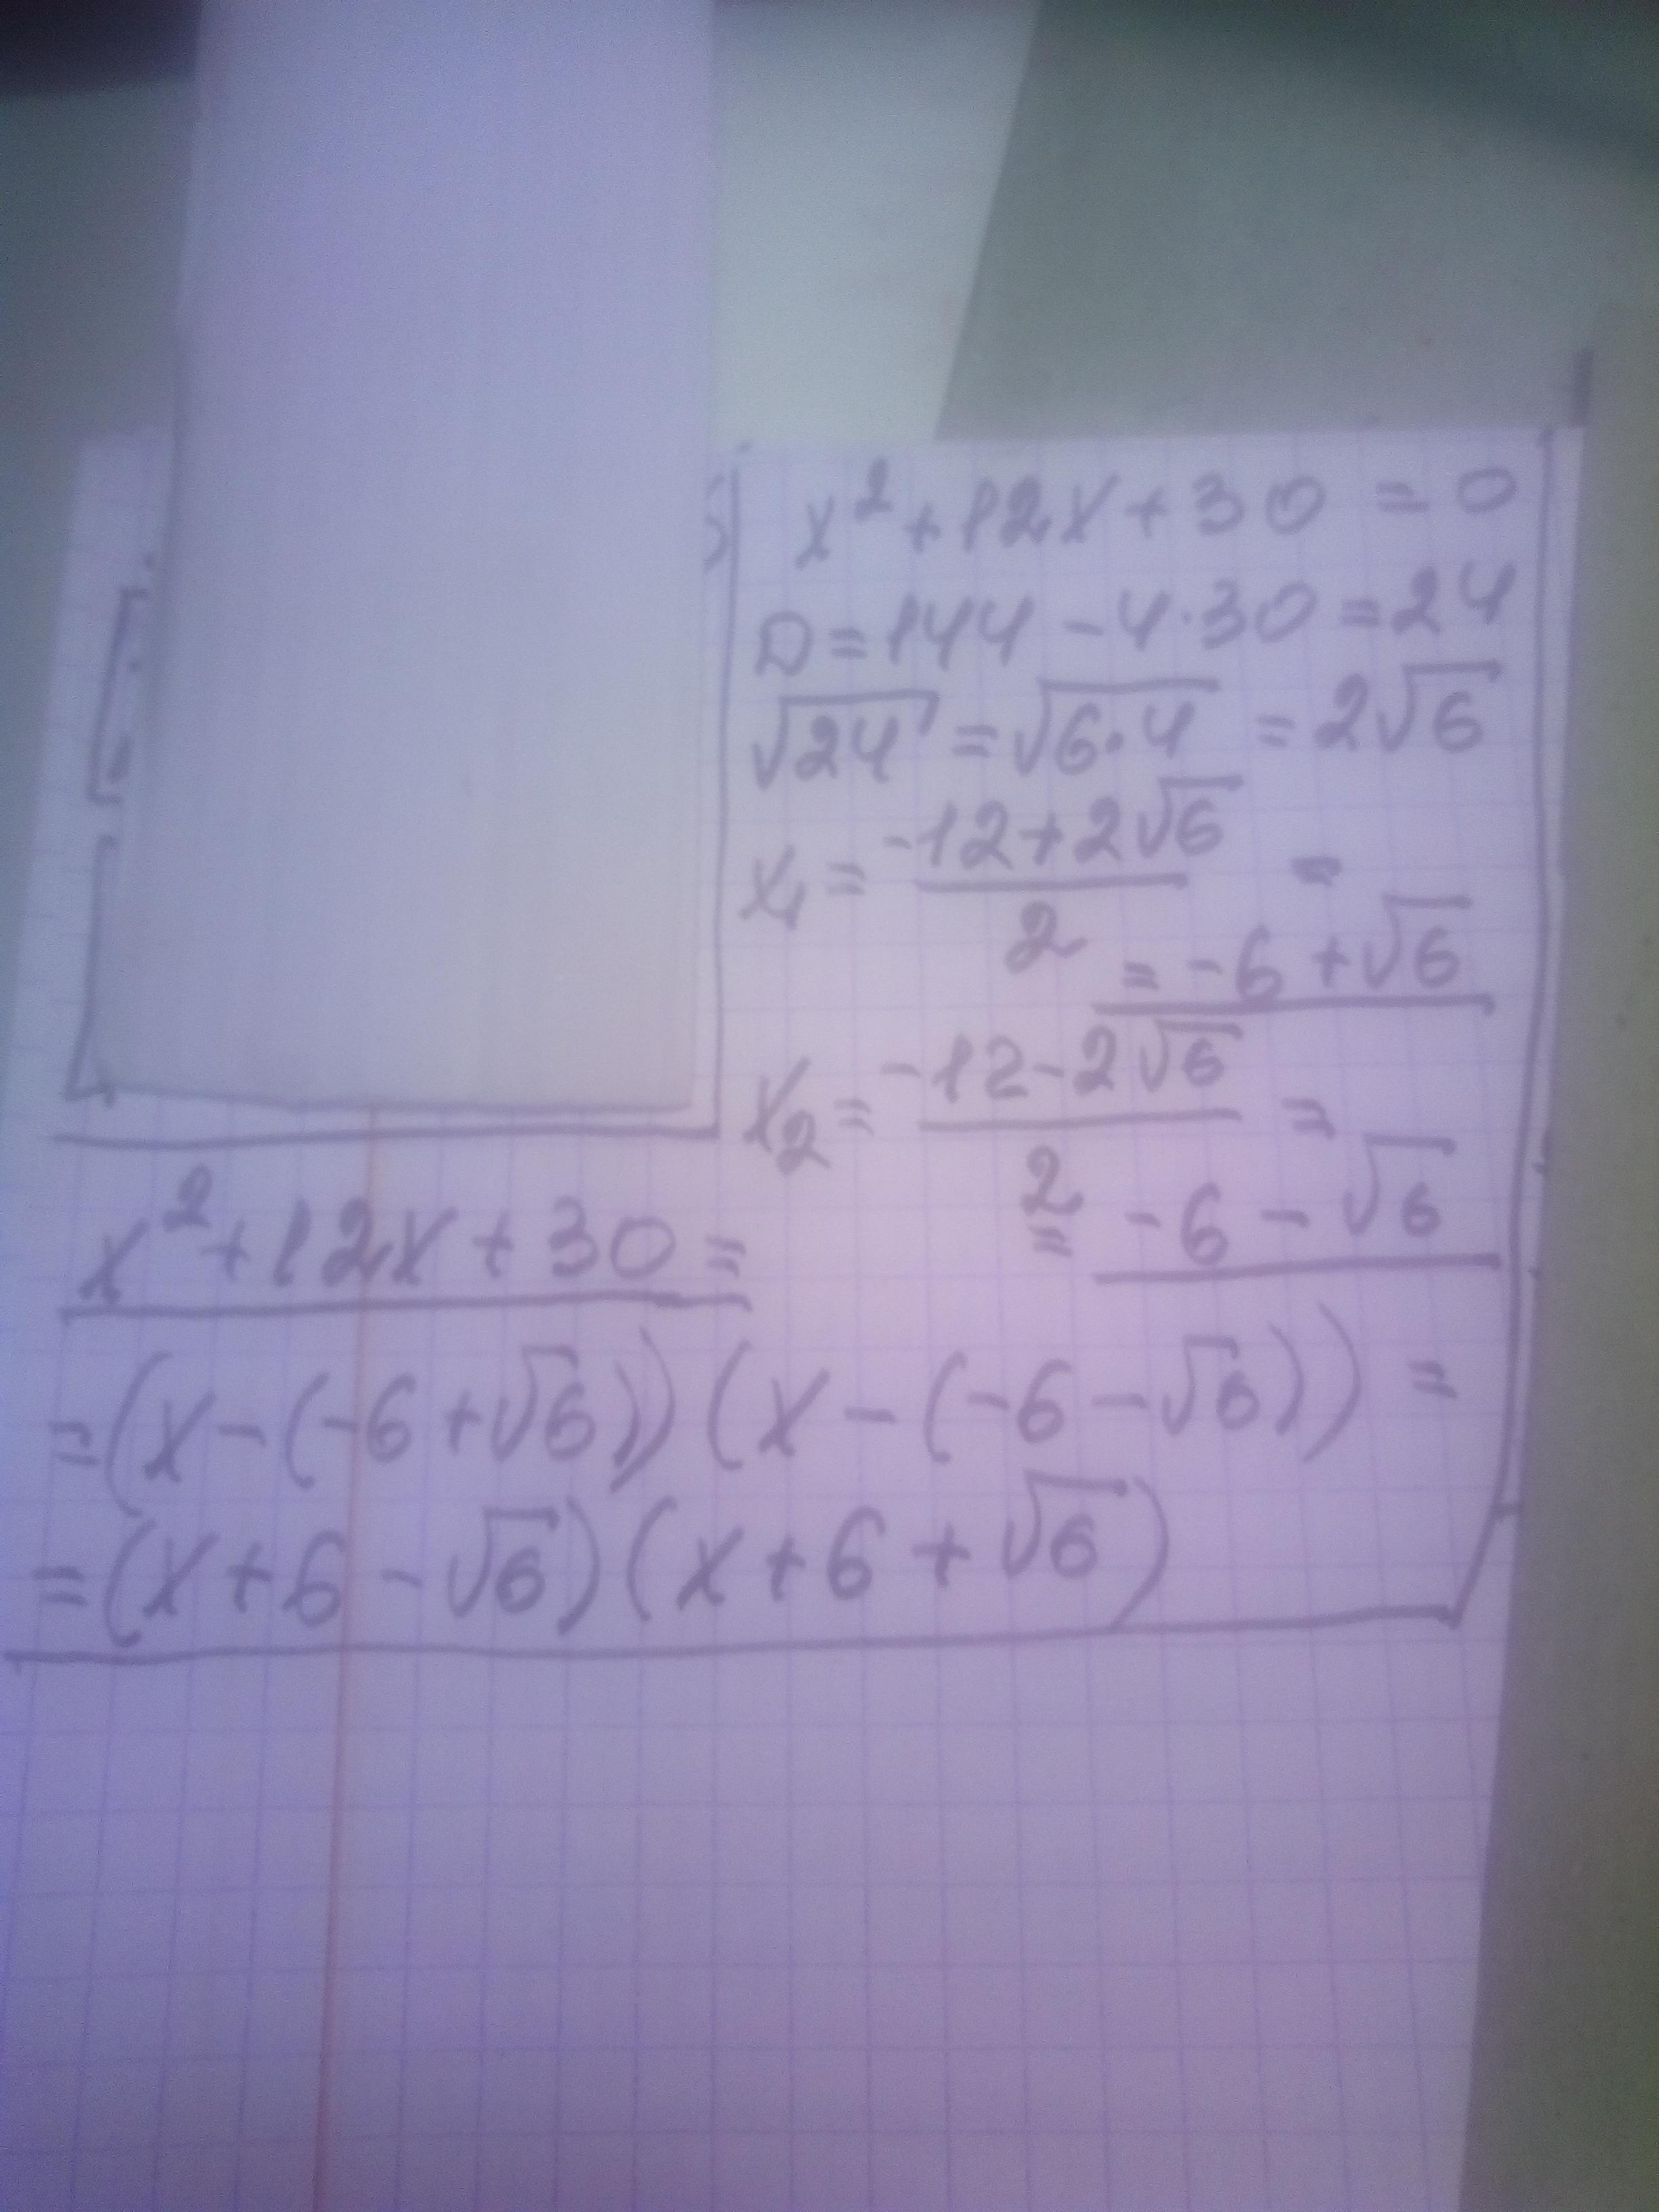 x² + 12x + 30 = 0
D = 144 - 4·30 = 24
√24 = √6·4 = 2√6
x₁ = (-12+2√6)/2 =
= -6 + √6
x₂ = (-12-2√6)/2 =
= -6 - √6
x² + 12x + 30 =
= (x - (-6 + √6)) (x - (-6 - √6)) =
= (x + 6 - √6) (x + 6 + √6)